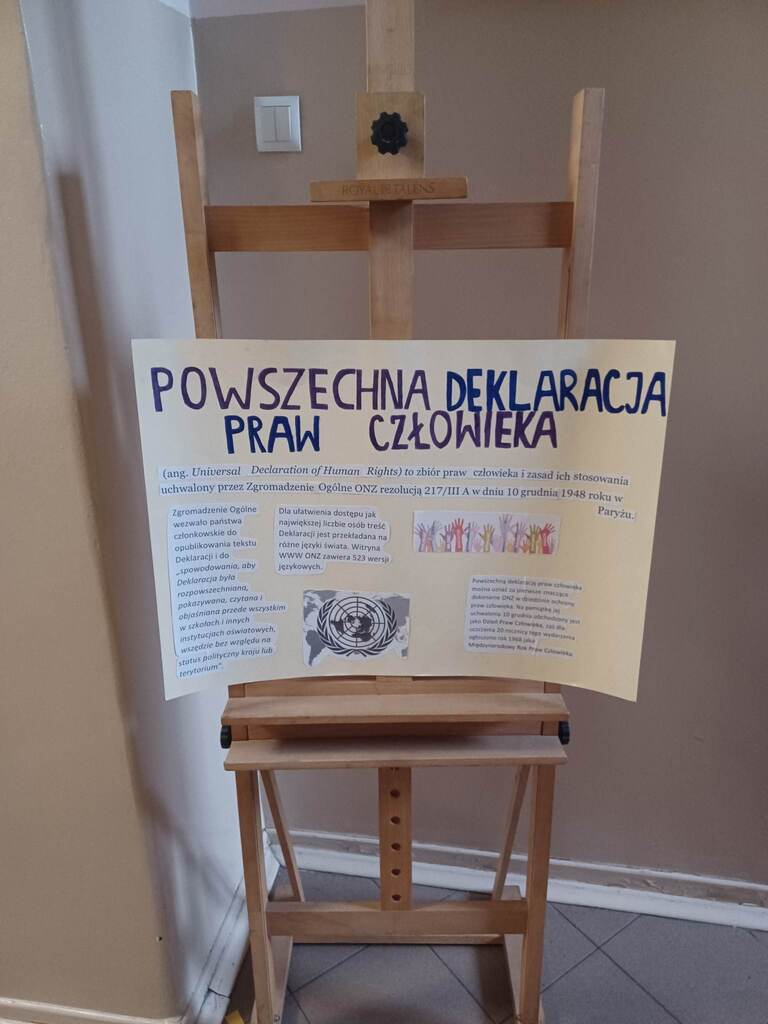 ROYAL TALENS
POWSZECHNA DEKLARACJA
PRAW CZŁOWIEKA
(ang. Universal Declaration of Human Rights) to zbiór praw człowieka i zasad ich stosowania
uchwalony przez Zgromadzenie Ogólne ONZ rezolucją 217/III A w dniu 10 grudnia 1948 roku w
Paryżu.
Zgromadzenie Ogólne
wezwało państwa
członkowskie do
opublikowania tekstu
Deklaracji i do
„spowodowania, aby
Deklaracja była
rozpowszechniana,
pokazywana, czytana i
objaśniana przede wszystkim
w szkołach i innych
instytucjach oświatowych,
wszędzie bez względu na
status polityczny kraju lub
terytorium".
Dla ułatwienia dostępu jak
największej liczbie osób treść
Deklaracji jest przekładana na
różne języki świata. Witryna
WWW ONZ zawiera 523 wersji
językowych.
Powszechną deklarację praw człowieka
można uznać za pierwsze znaczące
dokonanie ONZ w dziedzinie ochrony
praw człowieka. Na pamiątkę jej
uchwalenia 10 grudnia obchodzony jest
jako Dzień Praw Człowieka, zaś dla
uczczenia 20 rocznicy tego wydarzenia
ogłoszono rok 1968 jako
Międzynarodowy Rok Praw Człowieka.